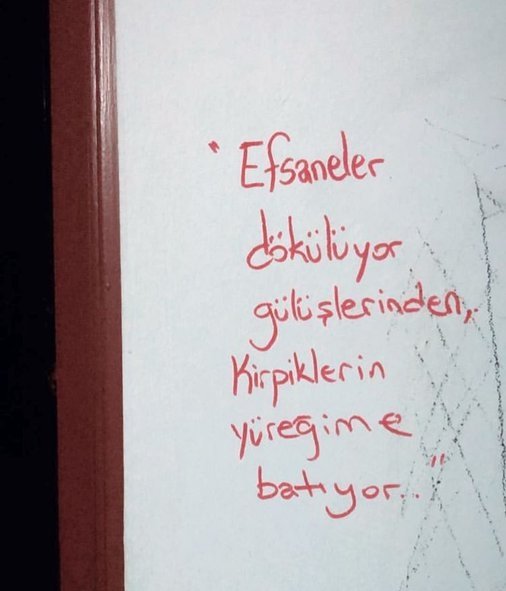 " Efsaneler
dökülüyor
gülüşlerinden,
Kirpiklerin
yüreğime
batıyor.. "